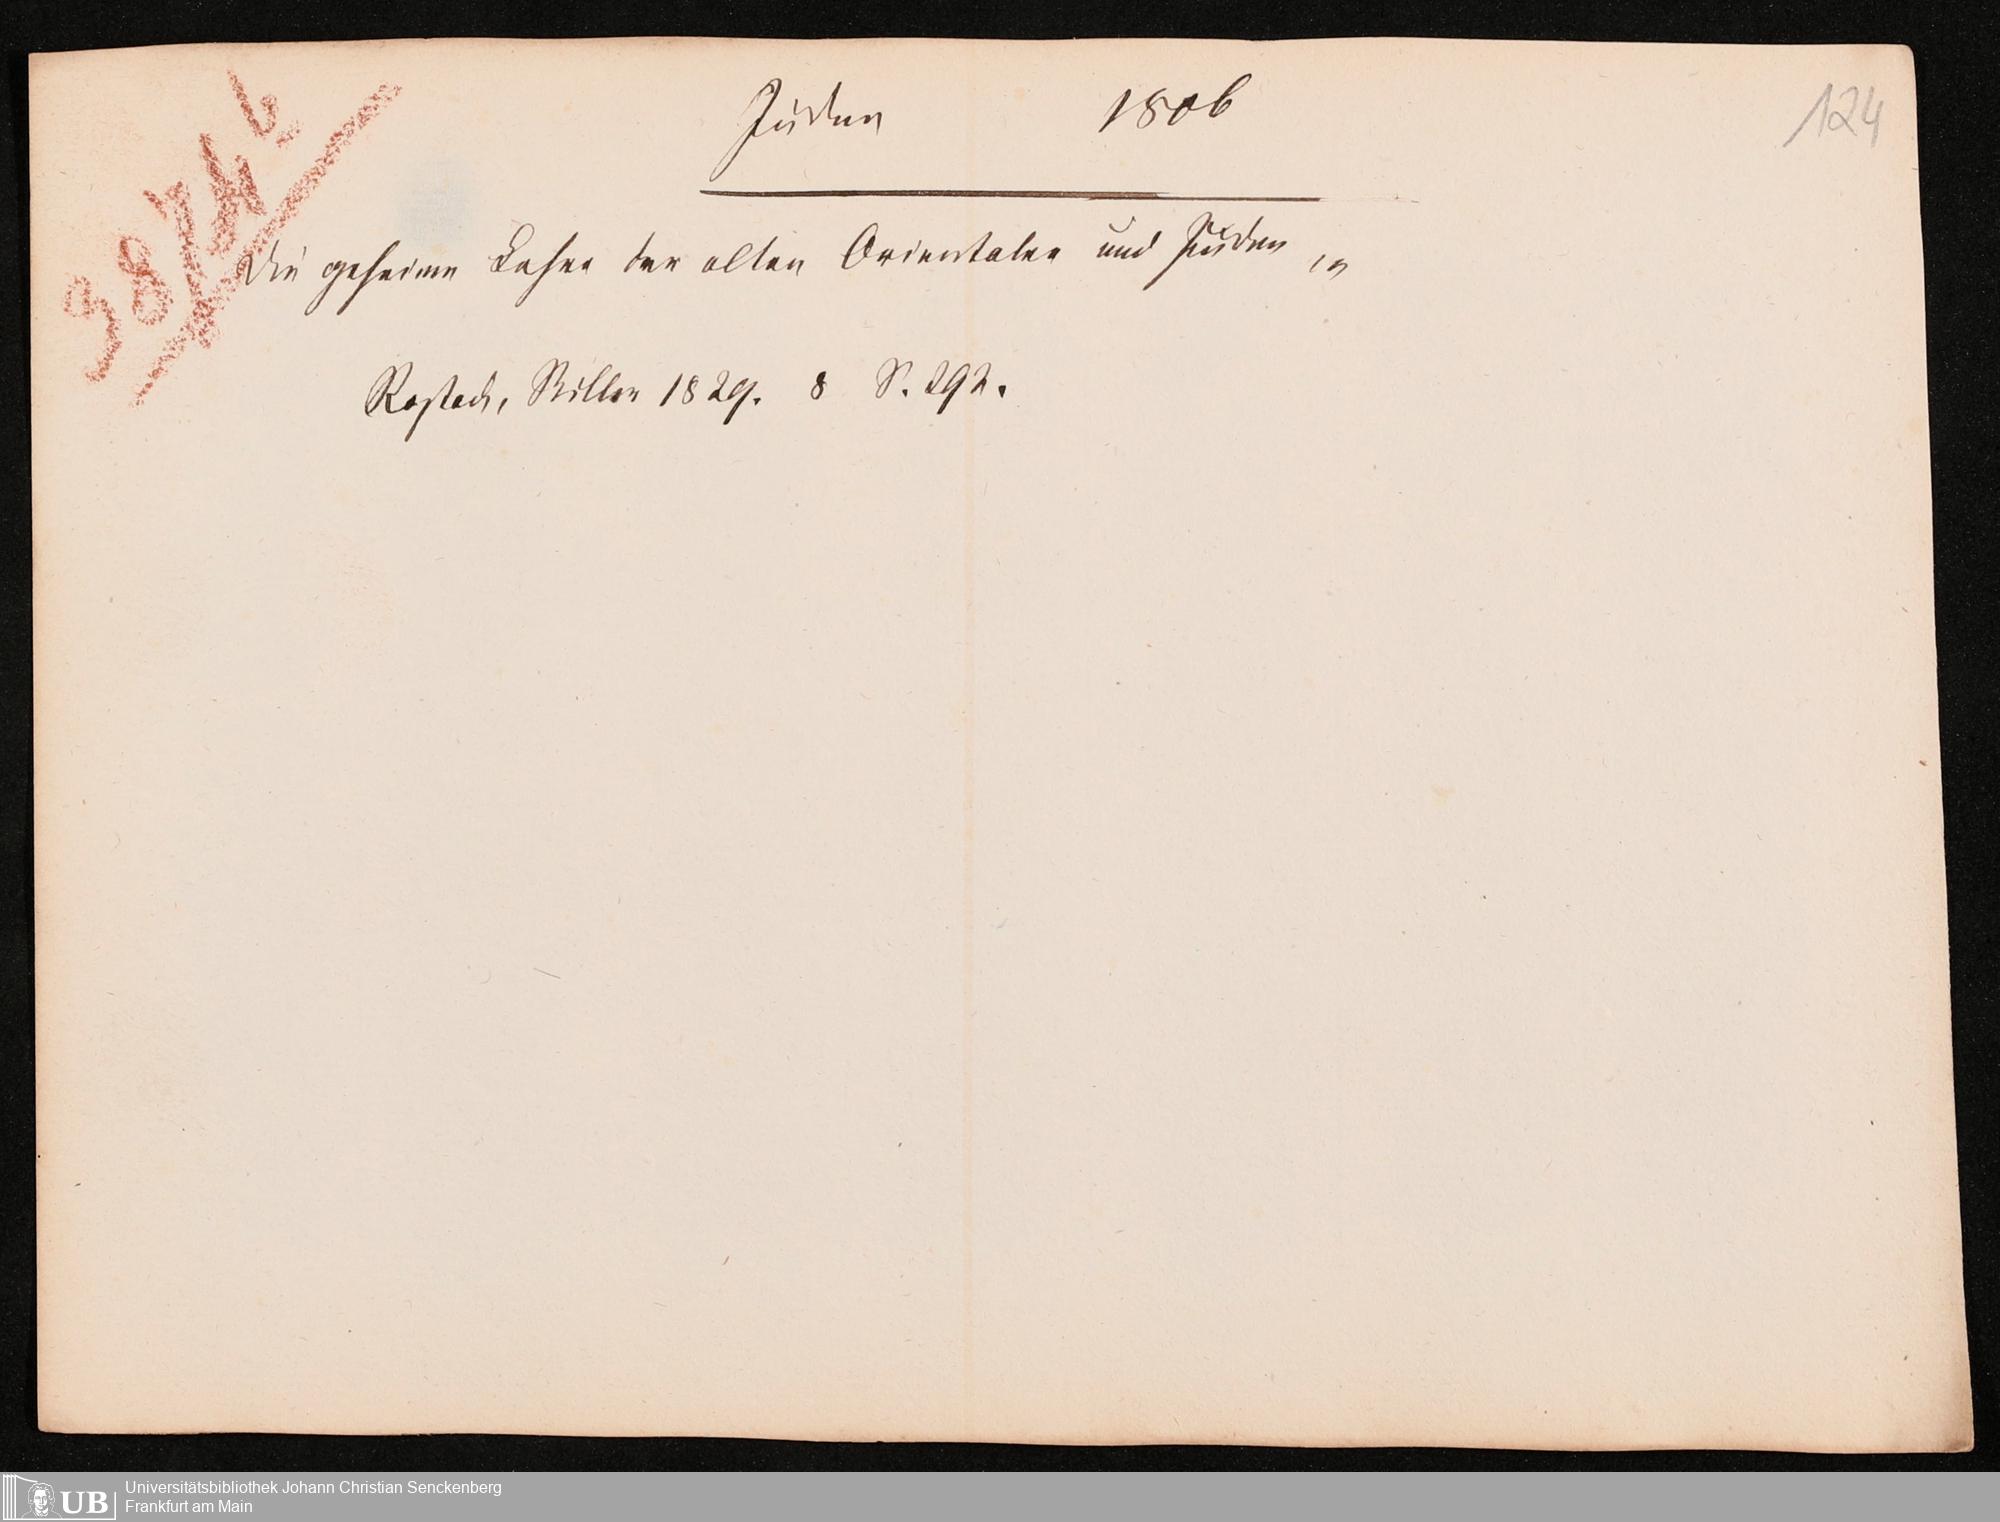 Juden 1806
124
Die geheime Lehre der alten Orientaler und Juden
Rostock, Stiller 1829. 8 S. 292.
Universitätsbibliothek Johann Christian Senckenberg
UB Frankfurt am Main